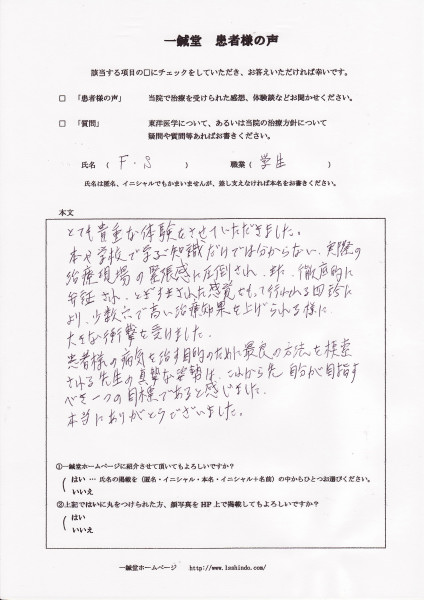 一鍼堂 患者様の声
該当する項目の□にチェックをしていただき、お答えいただければ幸いです。
□ 「患者様の声」 当院で治療を受けられた感想、体験談などお聞かせください。
□ 「質問」 東洋医学について、あるいは当院の治療方針について
疑問や質問等あればお書きください。
氏名 ( F・S ) 職業 ( 学生 )
氏名は匿名、イニシャルでもかまいませんが、差し支えなければ本名をお書きください。
本文
とても貴重な体験をさせていただきました。
本や学校で学ぶ知識だけでは分からない、実際の
治療現場の緊張感に圧倒され、また、徹底的に
弁証され、とぎすまされた感覚をもって行われる四診に
より、少数穴で高い治療効果を上げられる様に
大きな衝撃を受けました。
患者様の病気を治す目的のために最良の方法を検索
される先生の真摯な姿勢は、これから先、自分が目指す
べき一つの目標であると感じました。
本当にありがとうございました。
①一鍼堂ホームページに紹介させて頂いてもよろしいですか？
はい … 氏名の掲載を（匿名・イニシャル・本名・イニシャル＋名前）の中からひとつお選びください。
いいえ
②上記ではいに丸をつけられた方、顔写真を HP 上で掲載してもよろしいですか？
はい
いいえ
一鍼堂ホームページ http://www.1sshindo.com/